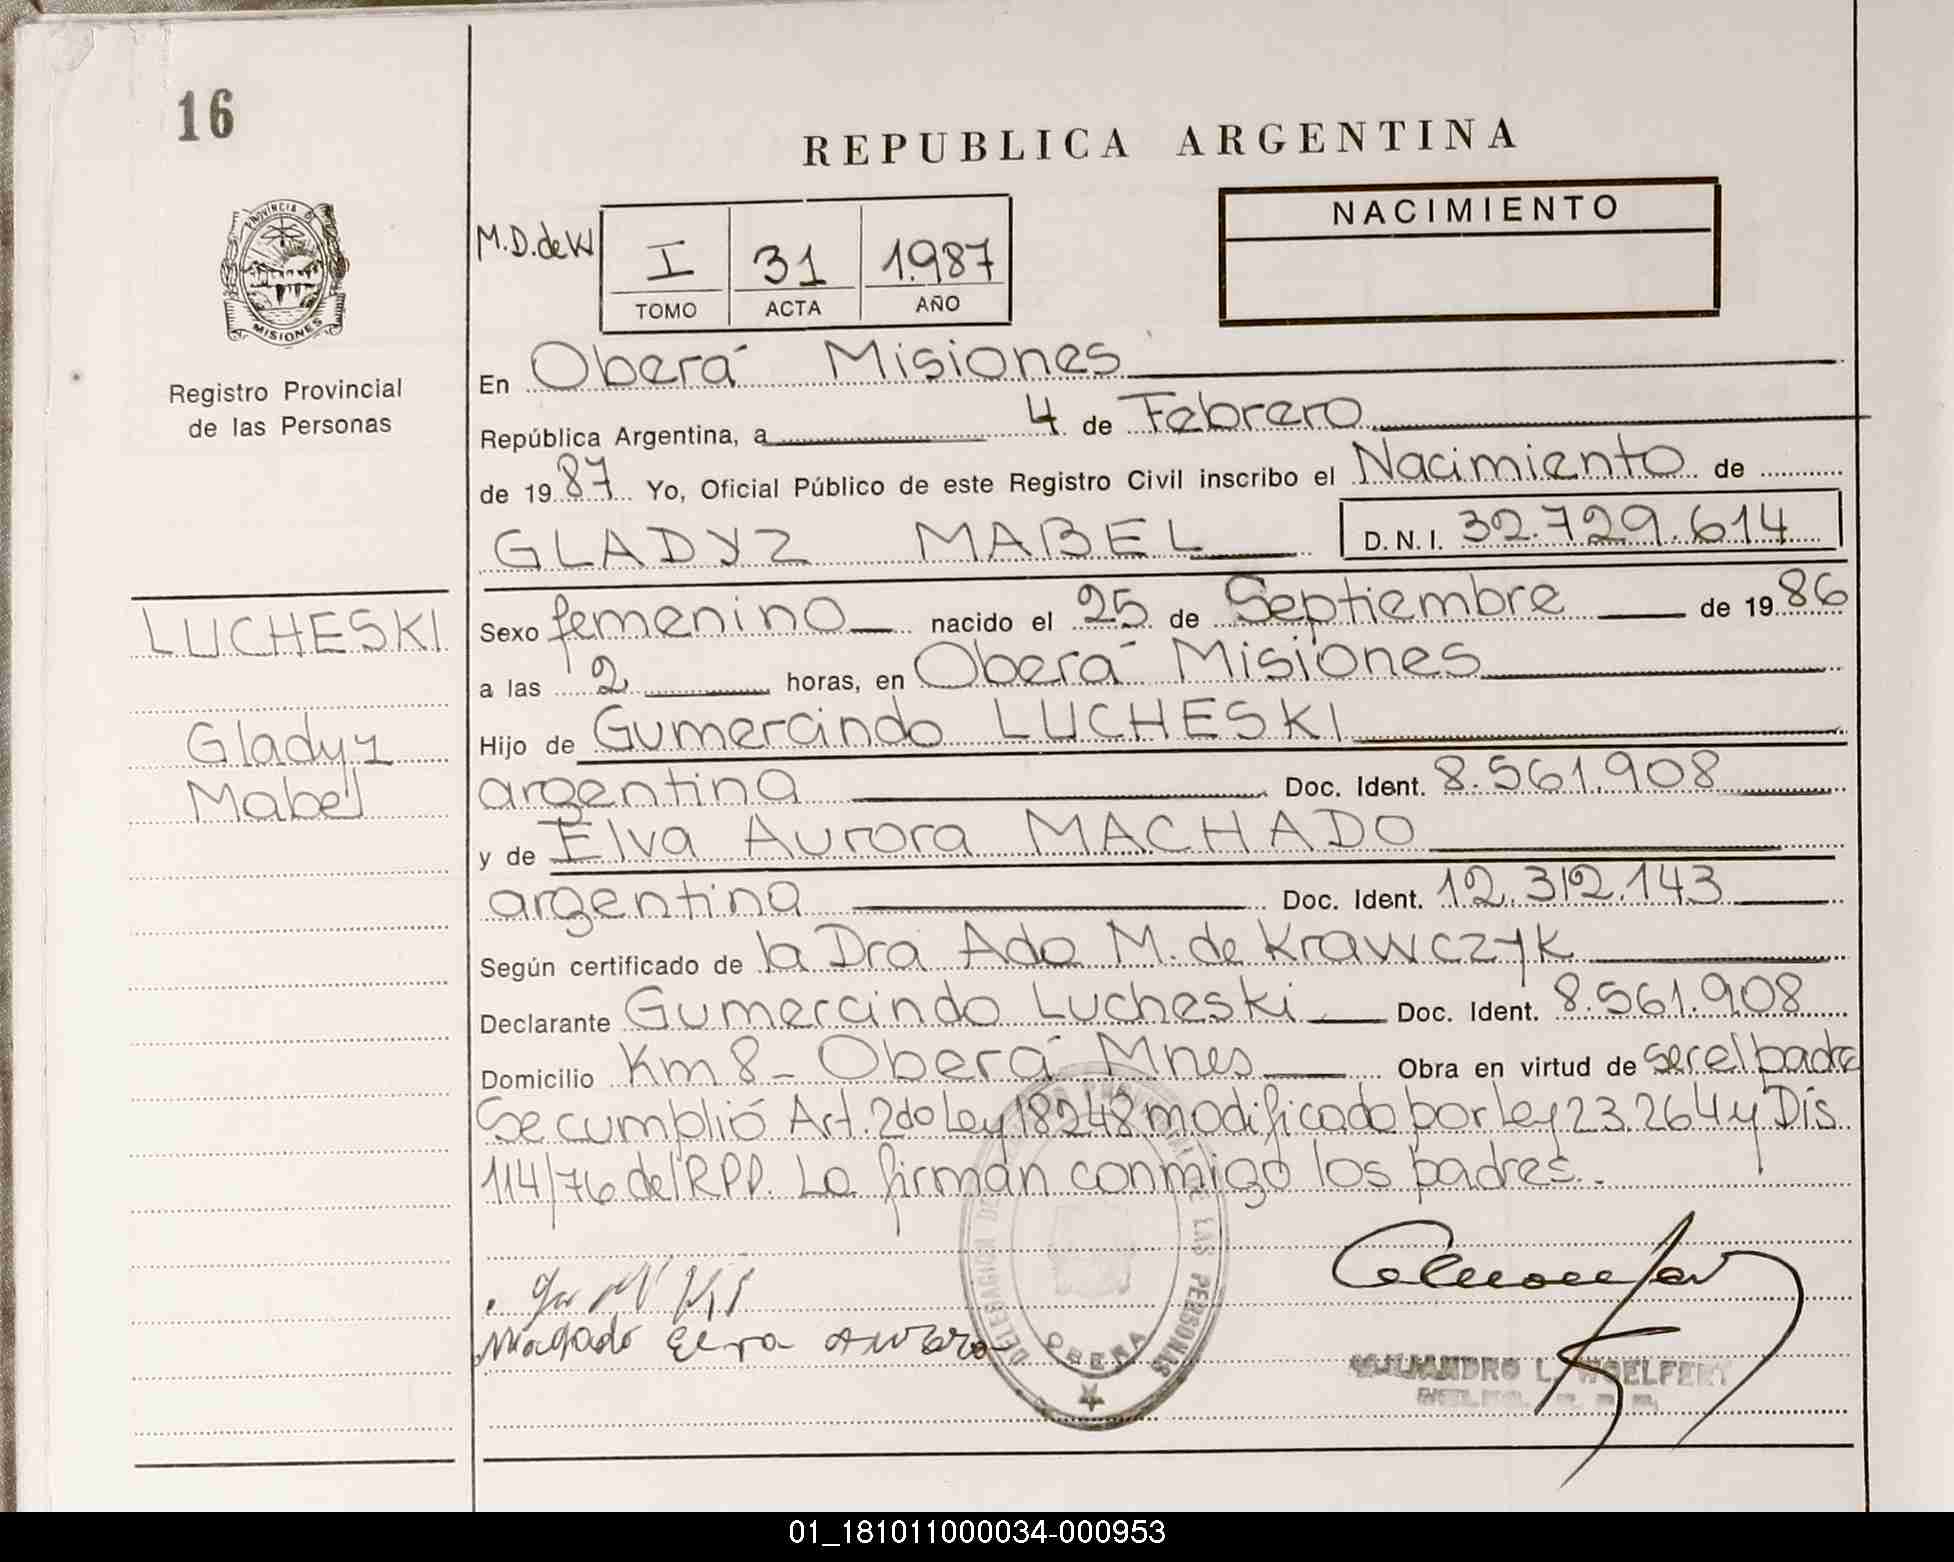 16
REPUBLICA ARGENTINA
NACIMIENTO
M.D.deW
I 31 1.987
TOMO ACTA AÑO
PROVINCIA DE
MISIONES
Registro Provincial
de las Personas
En Oberá Misiones
República Argentina, a 4 de Febrero
de 1987 Yo, Oficial Público de este Registro Civil inscribo el Nacimiento de
GLADYZ MABEL D.N.I. 32.729.614
LUCHESKI
Gladyz
Mabel
Sexo femenino nacido el 25 de Septiembre de 1986
a las 2 horas, en Oberá Misiones
Hijo de Gumercindo LUCHESKI
argentina Doc. Ident. 8.561.908
y de Elva Aurora MACHADO
argentina Doc. Ident. 12.312.143
Según certificado de la Dra Ada M. de Krawczyk
Declarante Gumercindo Lucheski Doc. Ident. 8.561.908
Domicilio Km 8 - Oberá Mnes Obra en virtud de ser el padre
Se cumplió Art. 2do Ley 18248 modificado por Ley 23.264 y Dis.
114/76 del RPP. La firman conmigo los padres.
Machado Elva Aurora
DELEGACION DE LAS PERSONAS
OBERA
ALEJANDRO L. WOELFERT
01_181011000034-000953